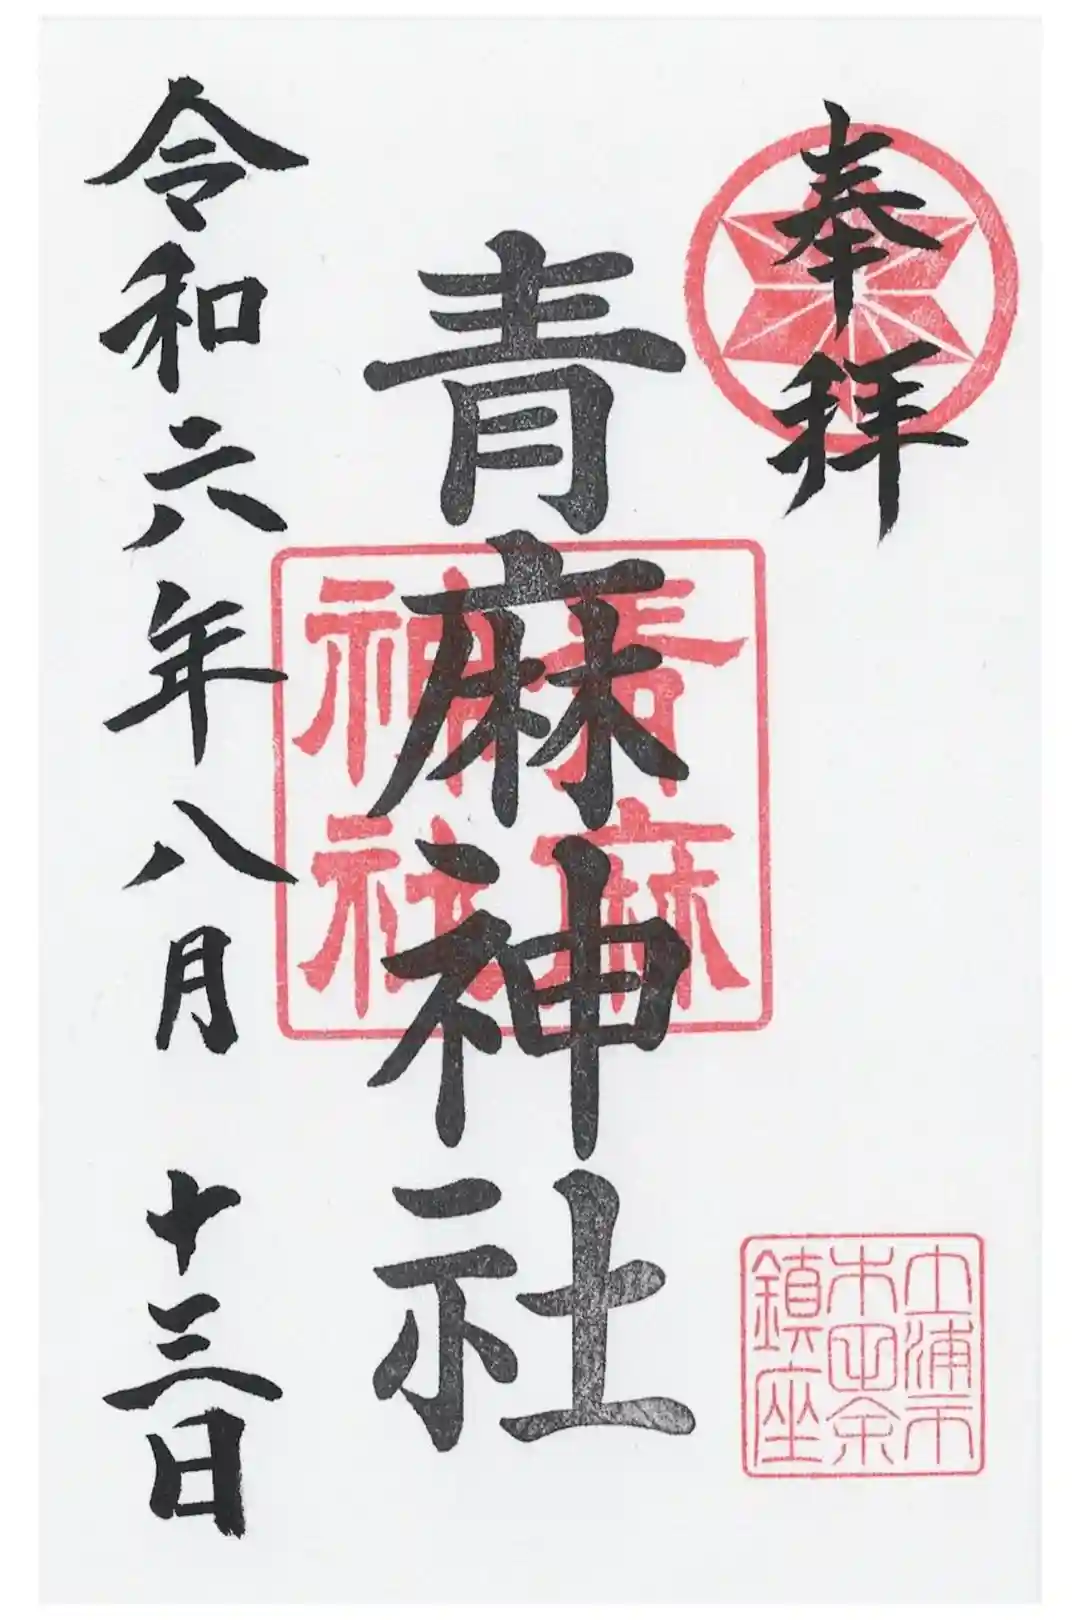 奉拝
土浦市
木田余
鎮座
青麻神社
青麻
神社
令和六年八月 十三日